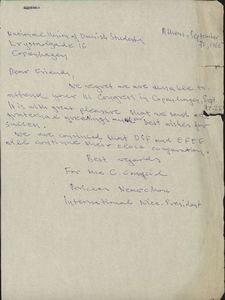 National Union of Danish Students Athens, September
Krystalgade 16
Copenhagen
Dear Friends,
We regret we are unable to
attend your III Congress in Copenhagen, Sept
It is with great pleasure that we send our
fraternal greetings and best wishes for
success.
We are convinced that DSF and EFEE
will continue their close cooperation.
Best regards
For the C. Council
International Vice-President